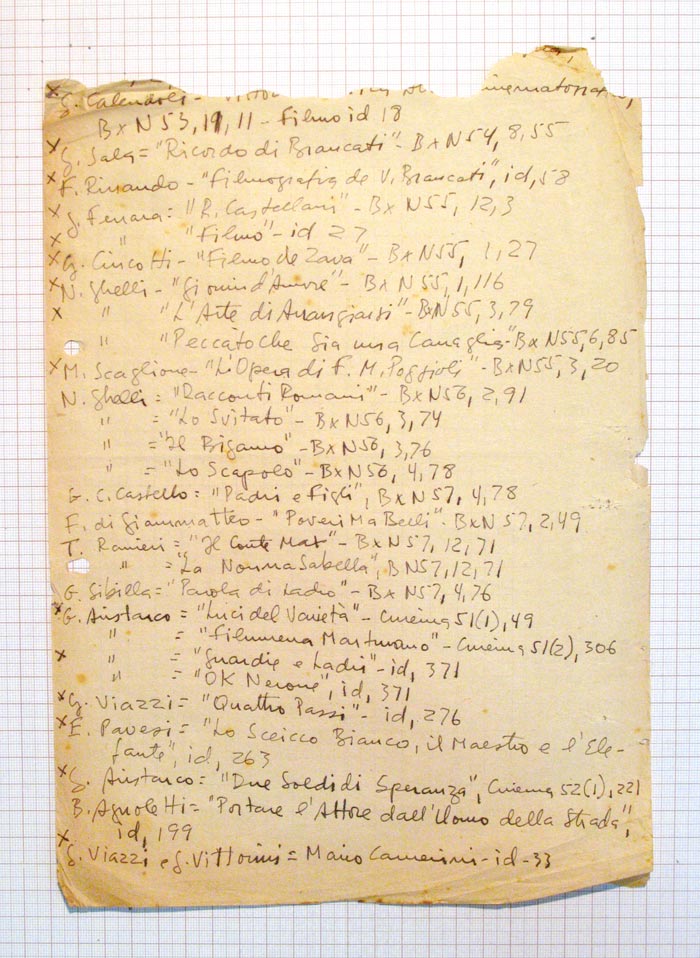 x G. Calendoli -
B x N 53, 19, 11 - Filmo id 18
x G. Sala = "Ricordo di Brancati" - B x N 54, 8, 55
x F. Rinando - "Filmografia de V. Brancati", id, 58
x G. Ferrara = "R. Castellani" - B x N 55, 12, 3
x " "Filmo" - id 27
x G. Cincotti - "Filmo de Zava" - B x N 55, 1, 27
x N. Ghelli - "Giorni d'Amore" - B x N 55, 1, 116
x " "L'Arte di Arrangiarsi" - B x N 55, 3, 79
" "Peccato che sia una Canaglia" - B x N 55, 6, 85
x M. Scaglione - "L'Opera di F. M. Poggioli" - B x N 55, 3, 20
N. Ghelli = "Racconti Romani" - B x N 56, 2, 91
" = "Lo Svitato" - B x N 56, 3, 74
" = "Il Bigamo" - B x N 56, 3, 76
" = "Lo Scapolo" - B x N 56, 4, 78
G. C. Castello = "Padri e Figli", B x N 57, 4, 78
F. di Giammatteo - "Poveri Ma Belli" - B x N 57, 2, 49
T. Ranieri = "Il Conte Max" - B x N 57, 12, 71
" = "La Nonna Sabella", B N 57, 12, 71
G. Sibilla = "Parola di Ladro" - B x N 57, 4, 76
x G. Aristarco = "Luci del Varietà" - Cinema 51(1), 49
" = "Filumena Marturano" - Cinema 51(2), 306
x " = "Guardie e Ladri" - id, 371
" = "OK Nerone", id, 371
x G. Viazzi = "Quattro Passi" - id, 276
x E. Pavesi = "Lo Sceicco Bianco, il Maestro e l'Ele-
fante", id, 263
x G. Aristarco = "Due Soldi di Speranza", Cinema 52(1), 221
B. Agnoletti = "Portare l'Attore dall'Uomo della Strada",
id, 199
x G. Viazzi e G. Vittorini = Mario Camerini - id - 33